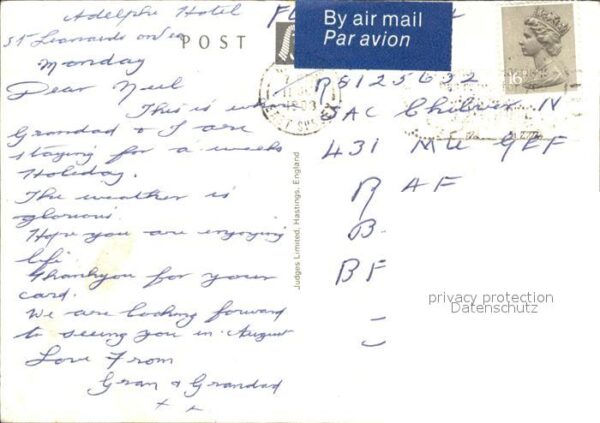 Adelphi Hotel
St Leonards on Sea
Monday
Dear Neil
This is where
Grandad & I are
staying for a weeks
Holiday.
The weather is
glorious.
Hope you are enjoying
life.
Thankyou for your
card.
We are looking forward
to seeing you in August
Love From
Gran & Grandad
x x
POST
Judges Limited, Hastings, England
By air mail
Par avion
16
SAC
N
431 MU
R AF
B
BF
privacy protection
Datenschutz